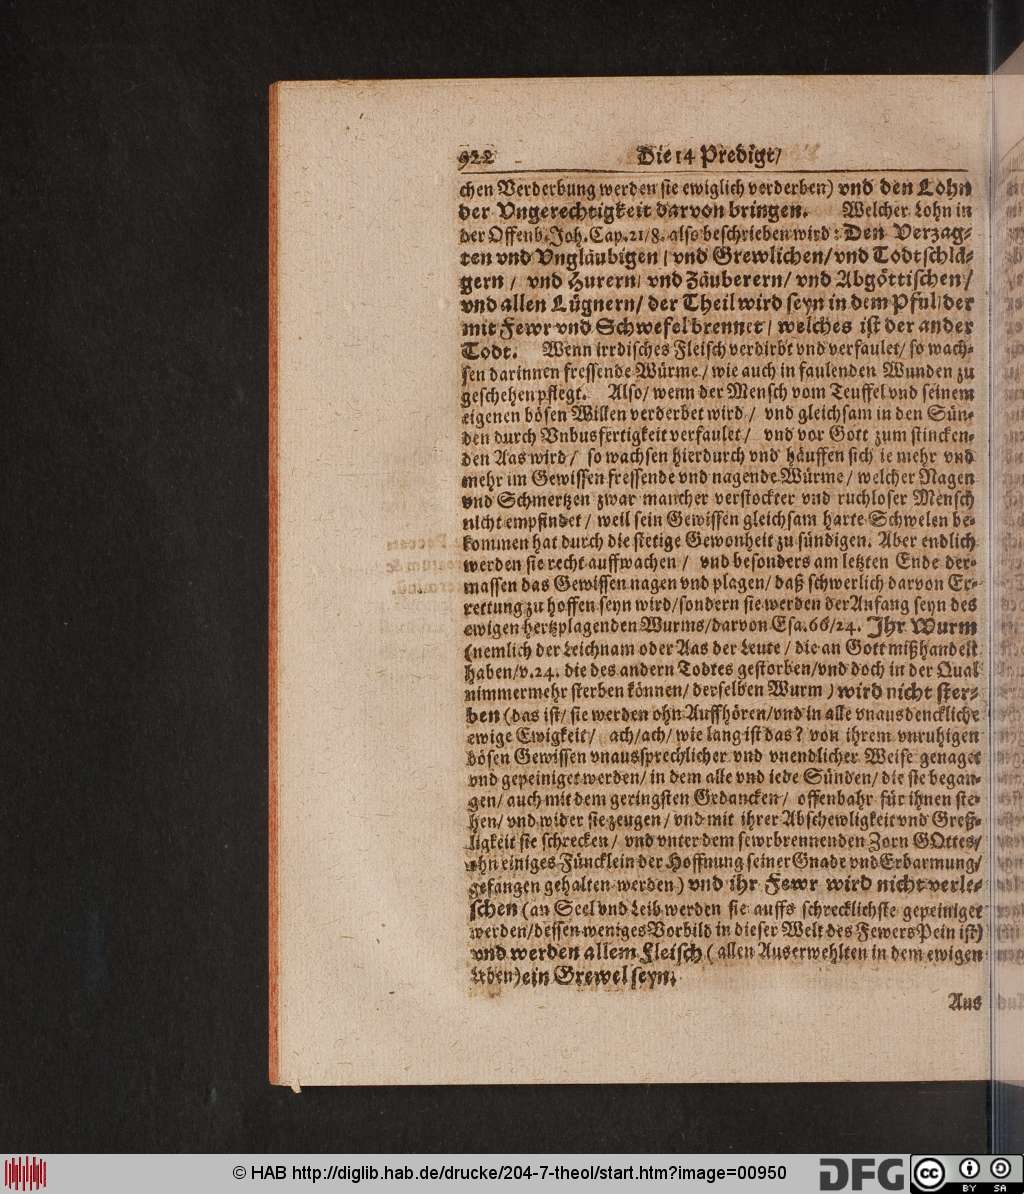 922 Die 14 Predigt/
chen Verderbung werden sie ewiglich verderben) vnd den Lohn
der Vngerechtigkeit darvon bringen. Welcher Lohn in
der Offenb. Joh. Cap. 21/8. also beschrieben wird: Den Verzag-
ten vnd Vngläubigen/ vnd Grewlichen/ vnd Todtschlä-
gern/ vnd Hurern/ vnd Zäuberern/ vnd Abgöttischen/
vnd allen Lügnern/ der Theil wird seyn in dem Pful/ der
mit Fewr vnd Schwefel brennet/ welches ist der ander
Todt. Wenn irrdisches Fleisch verdirbt vnd verfaulet/ so wach-
sen darinnen fressende Würme/ wie auch in faulenden Wunden zu
geschehen pflegt. Also/ wenn der Mensch vom Teuffel vnd seinem
eigenen bösen Willen verderbet wird/ vnd gleichsam in den Sün-
den durch Vnbusfertigkeit verfaulet/ vnd vor Gott zum stincken-
den Aas wird/ so wachsen hierdurch vnd häuffen sich ie mehr vnd
mehr im Gewissen fressende vnd nagende Würme/ welcher Nagen
vnd Schmertzen zwar mancher verstockter vnd ruchloser Mensch
nicht empfindet/ weil sein Gewissen gleichsam harte Schwelen be-
kommen hat durch die stetige Gewonheit zu sündigen. Aber endlich
werden sie recht auffwachen/ vnd besonders am letzten Ende der-
massen das Gewissen nagen vnd plagen/ daß schwerlich darvon Er-
rettung zu hoffen seyn wird/ sondern sie werden der Anfang seyn des
ewigen hertzplagenden Wurms/ darvon Esa. 66/24. Ihr Wurm
(nemlich der Leichnam oder Aas der Leute/ die an Gott mißhandelt
haben/ v. 24. die des andern Todtes gestorben/ vnd doch in der Qual
nimmermehr sterben können/ derselben Wurm) wird nicht ster-
ben (das ist/ sie werden ohn Auffhören/ vnd in alle vnausdenckliche
ewige Ewigkeit/ ach/ ach/ wie lang ist das? von ihrem vnruhigen
bösen Gewissen vnaussprechlicher vnd vnendlicher Weise genaget
vnd gepeiniget werden/ in dem alle vnd iede Sünden/ die sie began-
gen/ auch mit dem geringsten Gedancken/ offenbahr für ihnen ste-
hen/ vnd wider sie zeugen/ vnd mit ihrer Abschewligkeit vnd Greß-
ligkeit sie schrecken/ vnd vnter dem fewrbrennenden Zorn GOttes/
ohn einiges Füncklein der Hoffnung seiner Gnade vnd Erbarmung/
gefangen gehalten werden) vnd ihr Fewr wird nicht verle-
schen (an Seel vnd Leib werden sie auffs schrecklichste gepeiniget
werden/ dessen weniges Vorbild in dieser Welt des Fewers Pein ist)
vnd werden allem Fleisch (allen Auserwehlten in dem ewigen
Leben) ein Grewel seyn.
Aus
© HAB http://diglib.hab.de/drucke/204-7-theol/start.htm?image=00950
DFG
cc BY SA